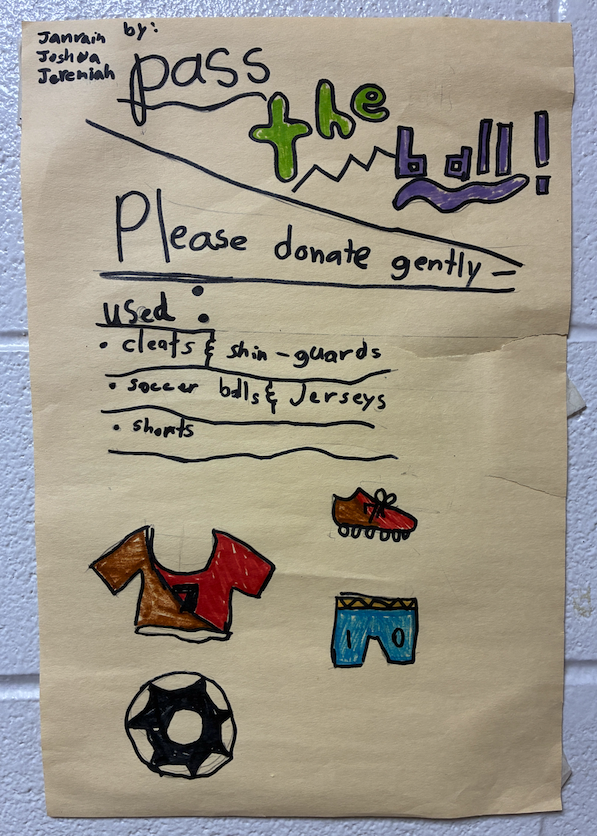 by:
Janvain
Joshua
Jeremiah
pass
the
ball!
Please donate gently-
used:
• cleats & shin-guards
• soccer balls & Jerseys
• shorts
7
1 0